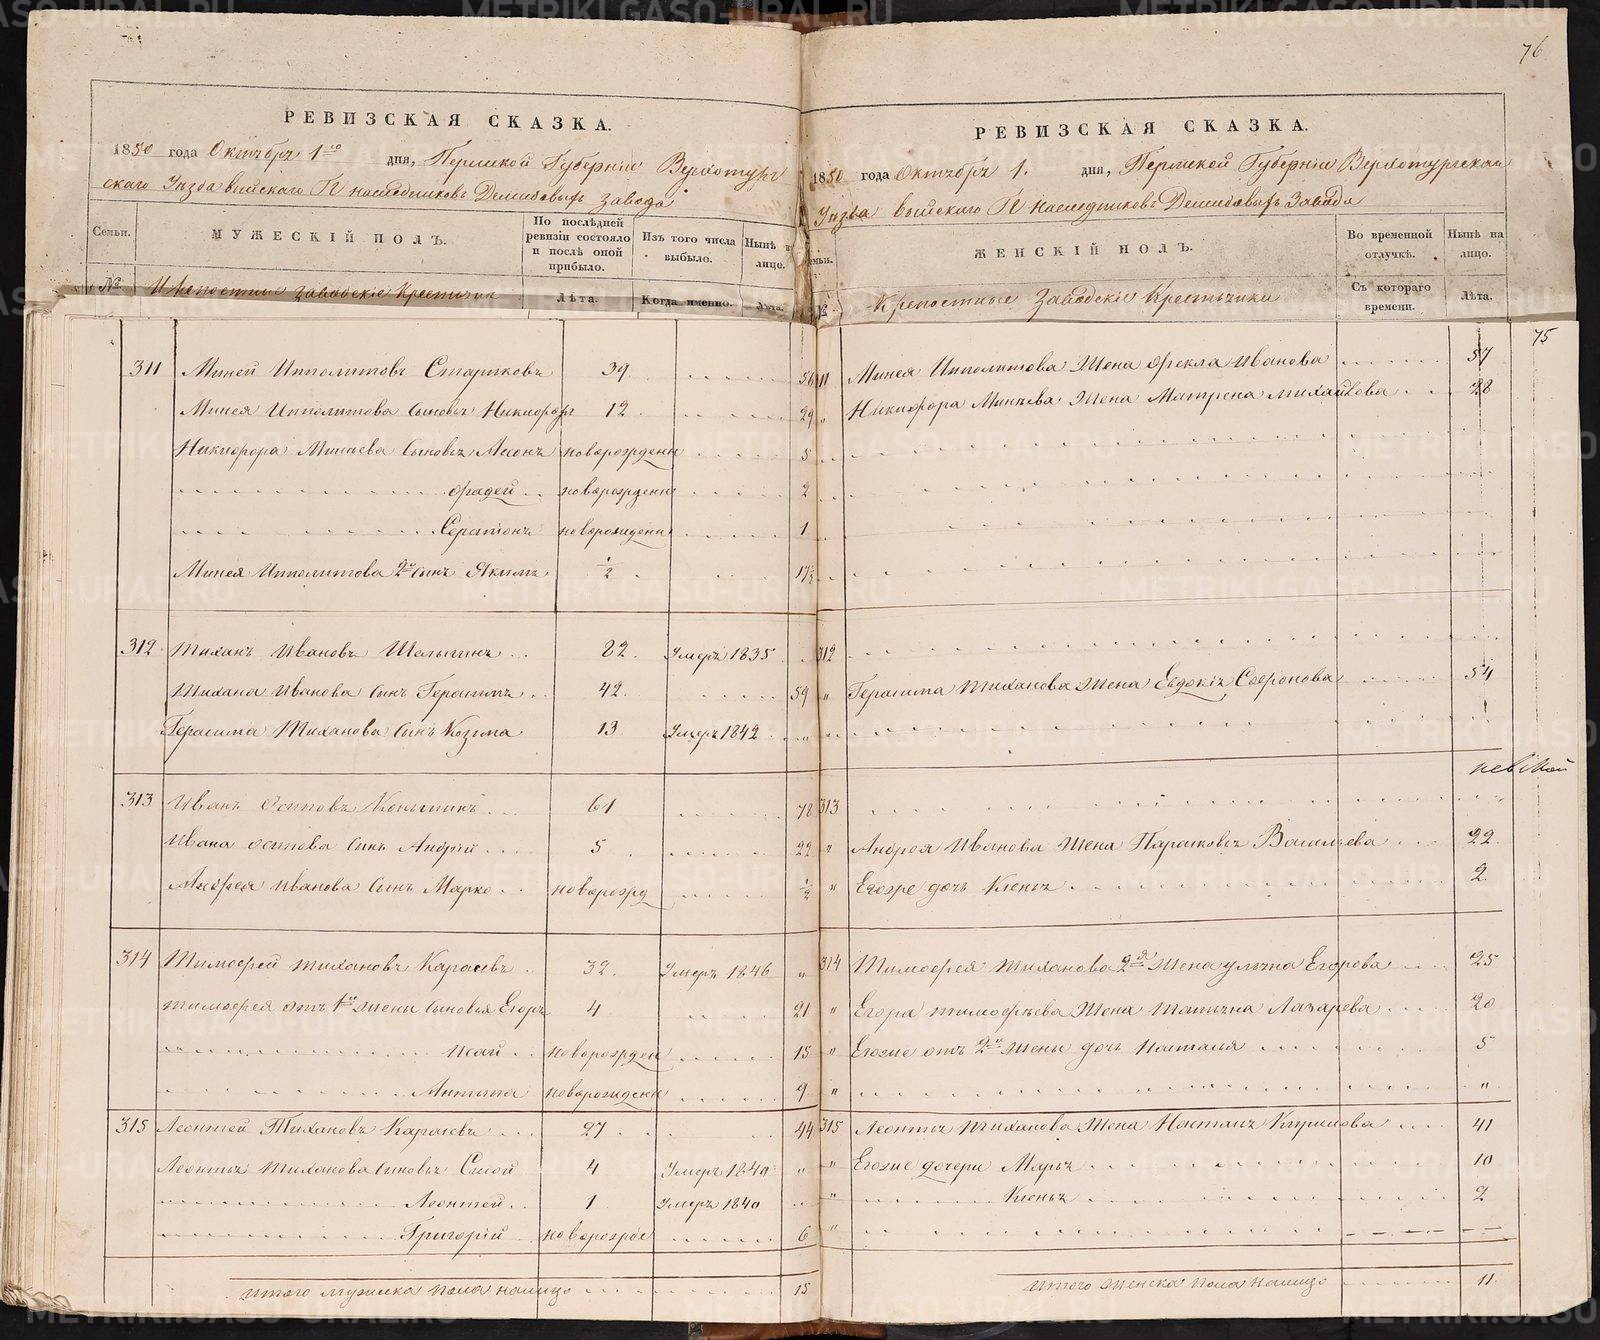 76
РЕВИЗСКАЯ СКАЗКА.
1850 года Октября 1го дня, Пермской Губерніи Верхотур
скаго Уезда Выйскаго Гг наследниковъ Демидовыхъ завода
Семьи.
МУЖЕСКІЙ ПОЛЪ.
По послѣдней ревизіи состояло и послѣ оной прибыло.
Изъ того числа выбыло.
Нынѣ на лицо.
№
Крепостные заводскіе Крестьяне
Лѣта.
Когда именно.
Лѣта.
311 Миней Ипполитовъ Стариковъ 39 56
Минея Ипполитова сыновья Никифоръ 12 29
Никифора Минеева сыновья новорожденн 5
Фадей новорожденн 2
Серапіонъ новорожденн 1
Минея Ипполитова 2й сынъ Якимъ ½ 17½
312 Тиханъ Ивановъ 82 Умеръ 1835
Тихана Иванова сынъ Герасимъ 42 59
Герасима Тиханова сынъ Козьма 13 Умеръ 1842 "
313 Иванъ Осиповъ 61 78
Ивана Осипова сынъ Андрей 5 22
Андрея Иванова сынъ Марко новорожд ½
314 Тимофей Тихановъ Карасевъ 32 Умеръ 1846 "
Тимофея отъ 1й жены сыновья Егоръ 4 21
Исай новорожден 15
Антипа новорожденн 9
315 Леонтей Тихановъ Карасевъ 27 44
Леонтья Тиханова сыновья Сысой 4 Умеръ 1840 "
Леонтей 1 Умеръ 1840
Григорій новорожде 6
Итого мужеска пола налицо 15
РЕВИЗСКАЯ СКАЗКА.
1850 года Октября 1. дня, Пермской Губерніи Верхотурскаго
Уезда Выйскаго Гг наследниковъ Демидовыхъ Завода
Семьи.
ЖЕНСКІЙ ПОЛЪ.
Во временной отлучкѣ.
Нынѣ на лицо.
№
Крепостные Заводскіе Крестьянки
Съ котораго времени.
Лѣта.
75
311 Минея Ипполитова Жена Фекла Иванова 57
" Никифора Минеева Жена Матрена Михайлова 28
312
" Герасима Тиханова Жена Евдокія Софронова 54
"
313
" Андрея Иванова Жена Парасковья Васильева 22
" Егоже дочь 2
314 Тимофея Тиханова 2я Жена Егорова 25
" Егора Тимофеева Жена Татьяна Лазарева 20
" Егоже отъ 2й Жены дочь Наталья 5
" "
315 Леонтья Тиханова Жена Кирилова 41
" Егоже дочери Марья 10
" 2
"
Итого Женска пола налицо 11
METRIKI.GASO-URAL.RU